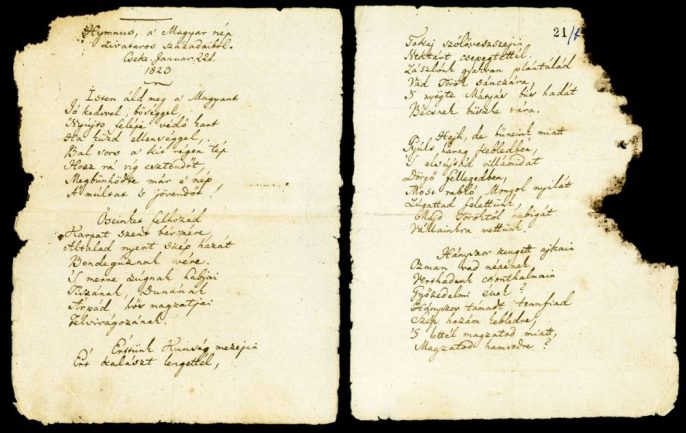 Hymnus, a' Magyar nép
zivataros századaiból.
Cseke. Januar. 22d.
1823
Isten áldd meg a' Magyart
Jó kedvvel, bőséggel,
Nyújts feléje védő kart
Ha küzd ellenséggel;
Bal sors a' kit régen tép
Hozz rá víg esztendőt,
Megbűnhődte már e' nép
A' múltat 's jövendőt!
Őseinket felhozád
Kárpát szent bérczére,
Általad nyert szép hazát
Bendegúznak vére.
'S merre zúgnak habjai
Tiszának, Dunának,
Árpád hős magzatjai
Felvirágozának.
Értünk Kunság mezejin
Ért kalászt lengettél,
21/
Tokaj szőlővesszejin
Nektárt csepegtettél.
Zászlónk gyakran plántálád
Vad Török sánczára,
'S nyögte Mátyás bús hadát
Bécsnek büszke vára.
Hajh, de bűneink miatt
Gyúlt harag kebledben,
'S elsújtád villámidat
Dörgő fellegedben,
Most rabló Mongol nyilát
Zúgattad felettünk,
Majd Töröktől rabigát
Vállainkra vettünk.
Hányszor zengett ajkain
Ozman vad népének
Vert hadunk csonthalmain
Győzedelmi ének!
Hányszor támadt tenfiad
Szép hazám kebledre,
'S lettél magzatod miatt,
Magzatod hamvvedre?